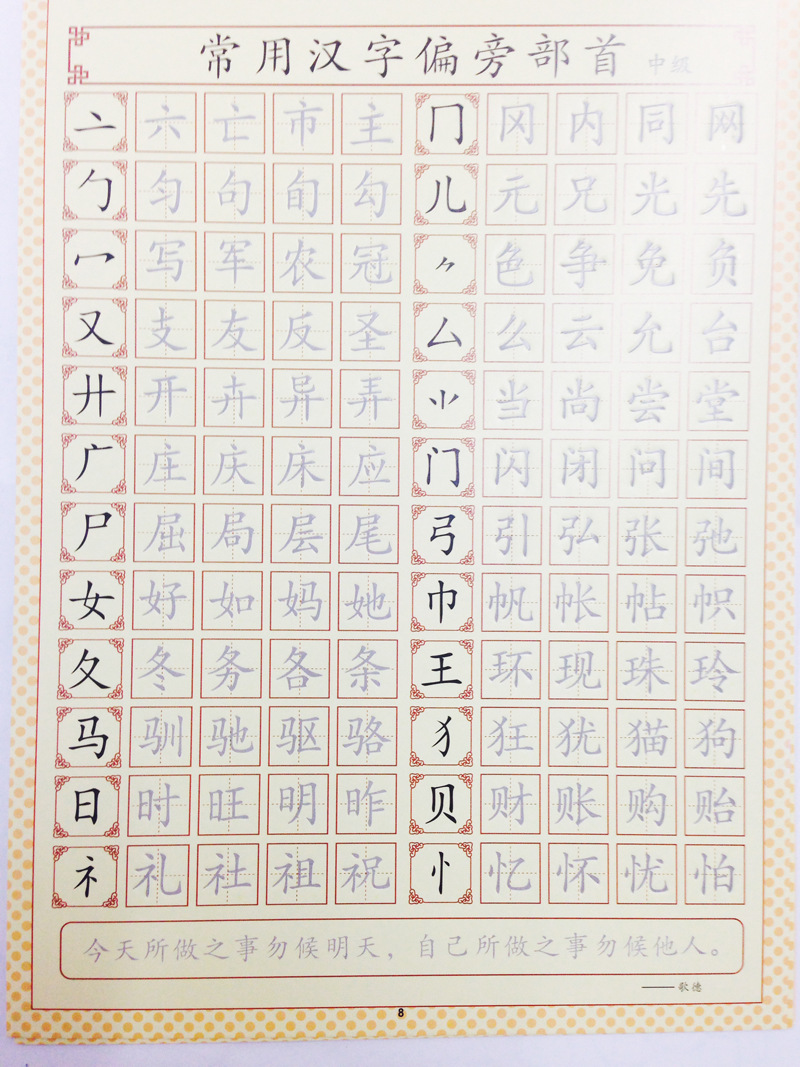 常用汉字偏旁部首 中级
亠 六 亡 市 主 冂 冈 内 同 网
勹 匀 句 旬 勾 儿 元 兄 光 先
冖 写 军 农 冠 ⺈ 色 争 免 负
又 支 友 反 圣 厶 么 云 允 台
廾 开 卉 异 弄 ⺌ 当 尚 尝 堂
广 庄 庆 床 应 门 闪 闭 问 间
尸 屈 局 层 尾 弓 引 弘 张 弛
女 好 如 妈 她 巾 帆 帐 帖 帜
夂 冬 务 各 条 王 环 现 珠 玲
马 驯 驰 驱 骆 犭 狂 犹 猫 狗
日 时 旺 明 昨 贝 财 账 购 贻
礻 礼 社 祖 祝 忄 忆 怀 忧 怕
今天所做之事勿候明天，自己所做之事勿候他人。
——歌德
8